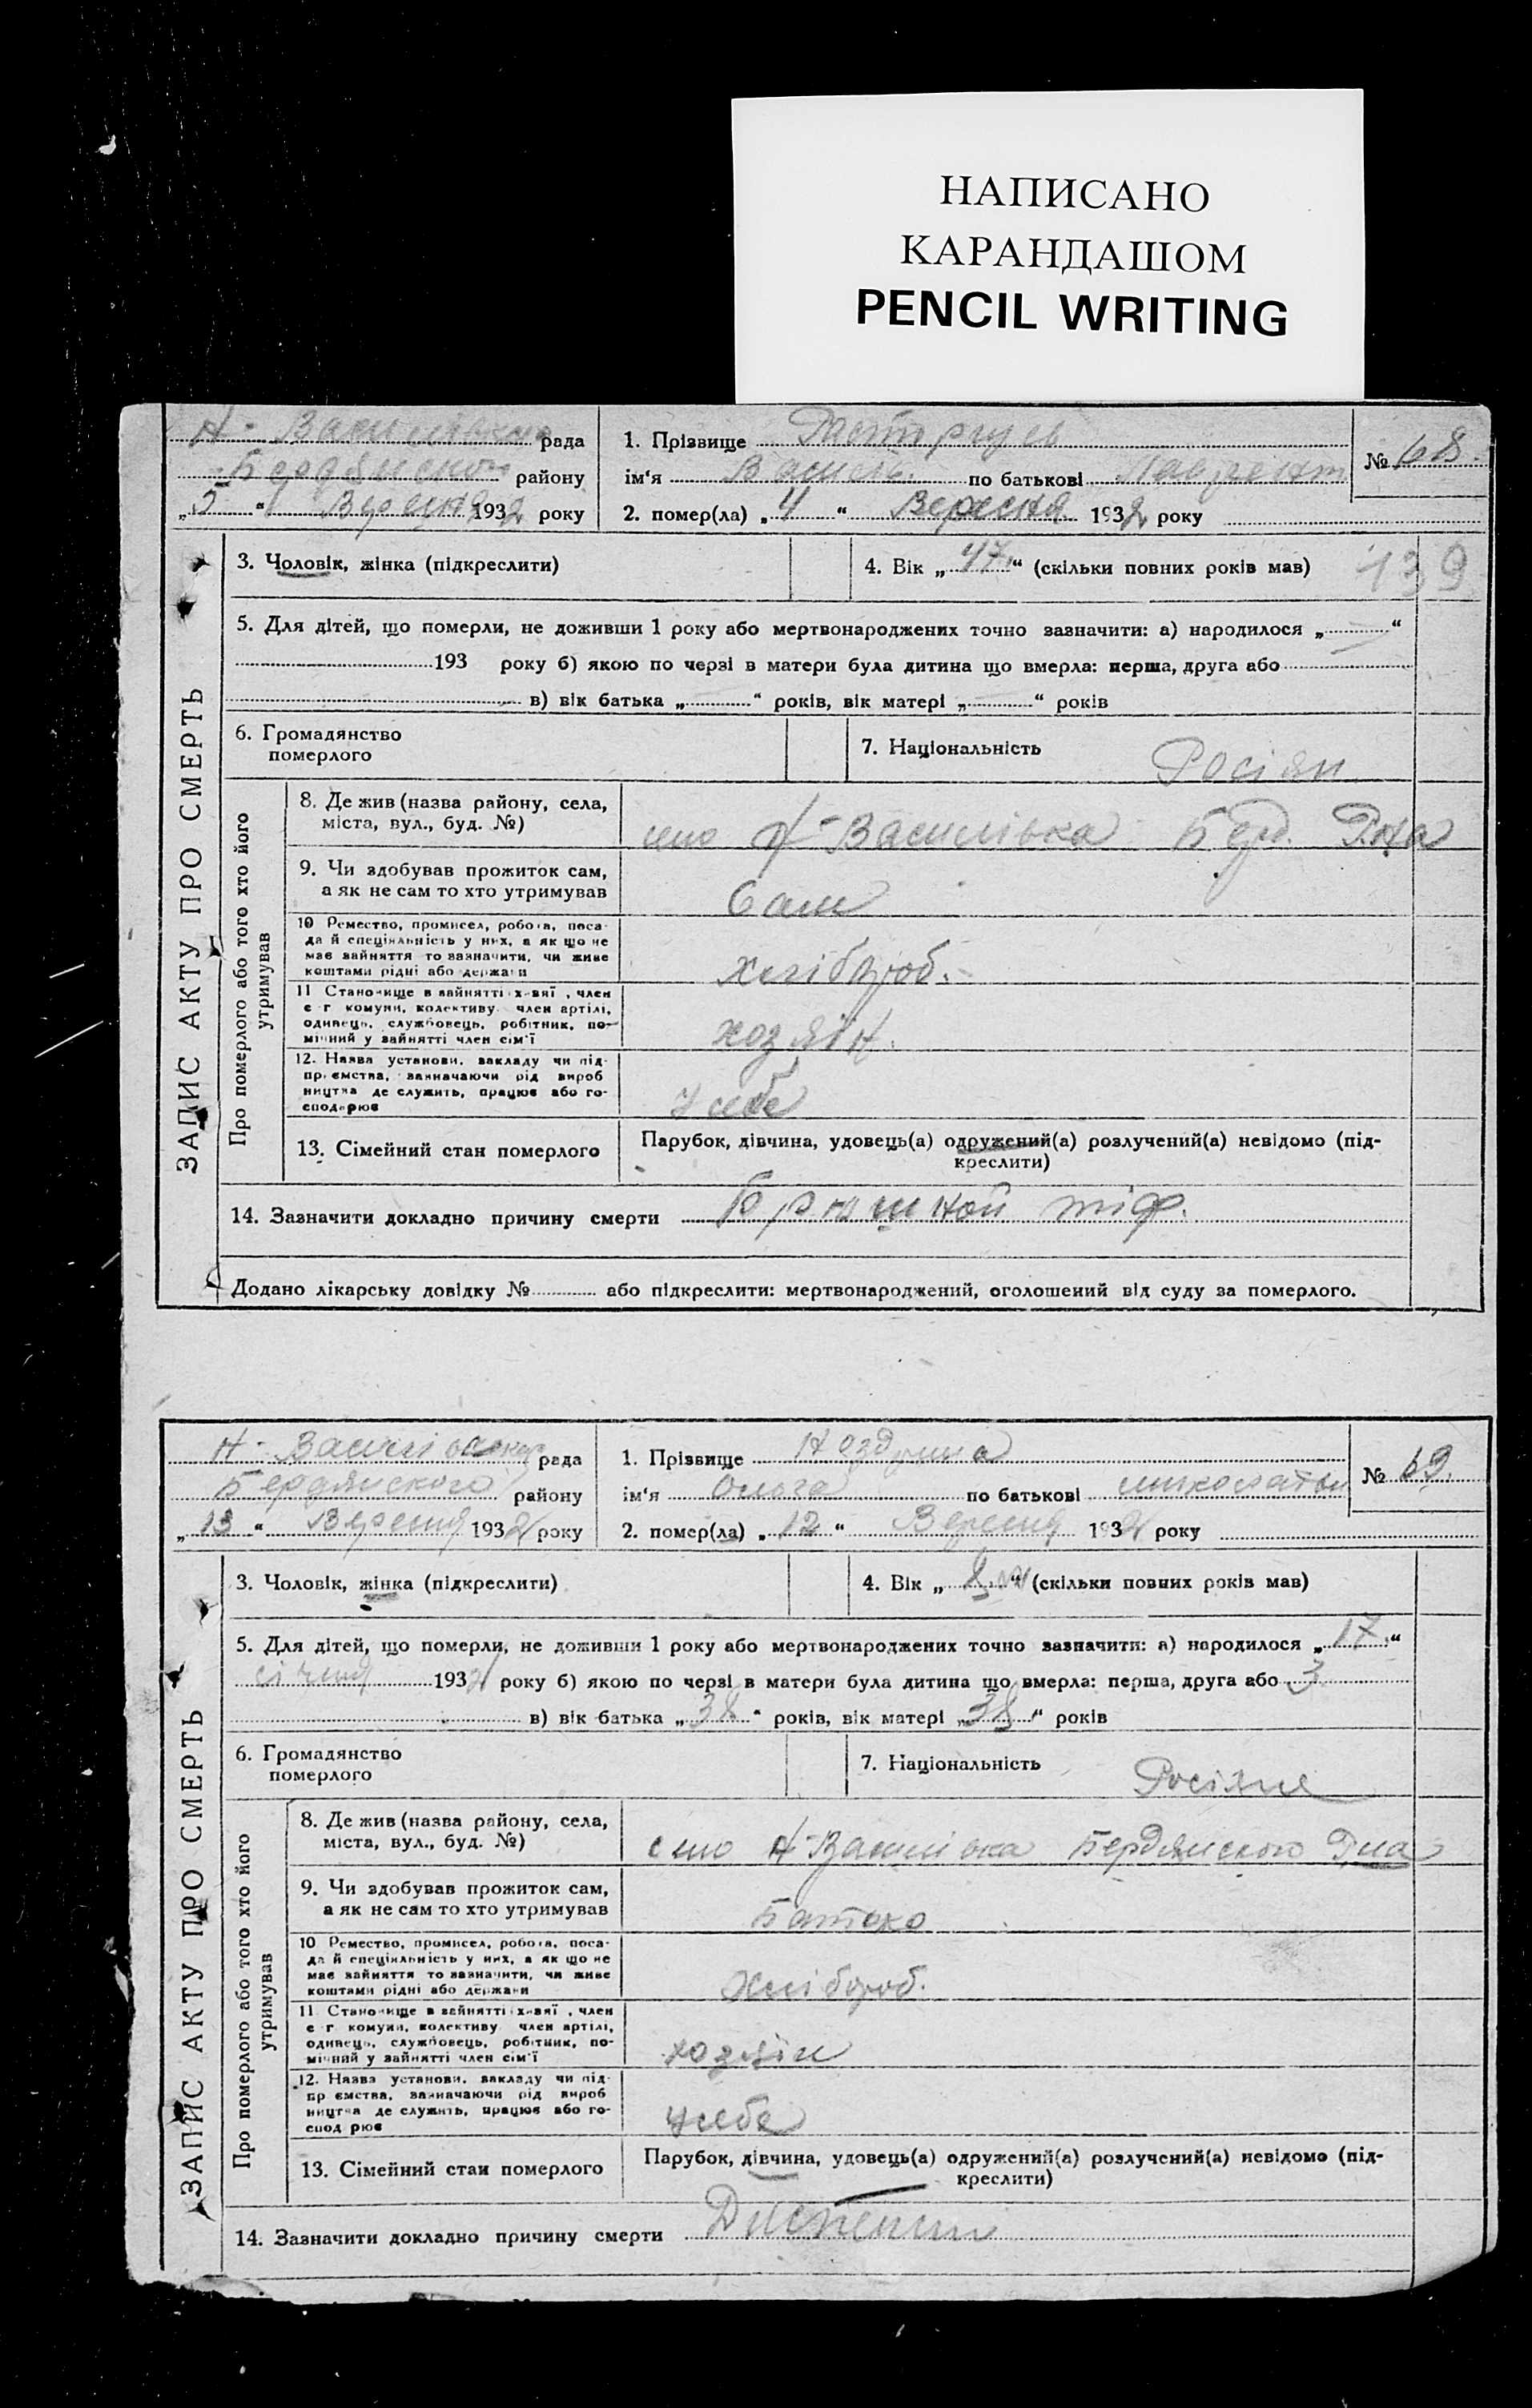 НАПИСАНО
КАРАНДАШОМ
PENCIL WRITING
Н-Василівська рада
Бердянского району
„5“ Вересня 1932 року
1. Прізвище Расторгуев
ім‘я Василь. по батькові Лаврент
2. помер(ла) „4“ Вересня 1932 року
№ 68.
3. Чоловік, жінка (підкреслити)
4. Вік „47“ (скільки повних років мав)
139
5. Для дітей, що померли, не доживши 1 року або мертвонароджених точно зазначити: а) народилося „ “
193 року б) якою по черзі в матери була дитина що вмерла: перша, друга або
в) вік батька „ “ років, вік матері „ “ років
6. Громадянство
померлого
7. Національність Росіян
ЗАПИС АКТУ ПРО СМЕРТЬ
Про померлого або того хто його
утримував
8. Де жив (назва району, села,
міста, вул., буд. №)
село Н-Василівка Берд. Р-на
9. Чи здобував прожиток сам,
а як не сам то хто утримував
Сам
10 Ремество, промисел, робота, поса-
да й спеціяльність у них, а як що не
має зайняття то зазначити, чи живе
коштами рідні або держави
Хлібороб.
11 Становище в зайнятті хазяї , член
с г комуни, колективу член артілі,
одинець, службовець, робітник, по-
мічний у зайнятті член сім'ї
хозяїн.
12. Назва установи, закладу чи під-
приємства, зазначаючи рід вироб
ництва де служить, працює або го-
сподарює
у себе
13. Сімейний стан померлого
Парубок, дівчина, удовець(а) одружений(а) розлучений(а) невідомо (під-
креслити)
14. Зазначити докладно причину смерти Брюшной тіф.
Додано лікарську довідку № або підкреслити: мертвонароджений, оголошений від суду за померлого.
Н-Василівська рада
Бердянского району
„13“ Вересня 1932 року
1. Прізвище
ім‘я Ольга по батькові
2. помер(ла) „12“ Вересня 1932 року
№ 69.
3. Чоловік, жінка (підкреслити)
4. Вік „ “ (скільки повних років мав)
5. Для дітей, що померли, не доживши 1 року або мертвонароджених точно зазначити: а) народилося „17“
січня 1932 року б) якою по черзі в матери була дитина що вмерла: перша, друга або 3
в) вік батька „38“ років, вік матері „38“ років
6. Громадянство
померлого
7. Національність Росіяне
ЗАПИС АКТУ ПРО СМЕРТЬ
Про померлого або того хто його
утримував
8. Де жив (назва району, села,
міста, вул., буд. №)
село Н-Василівка Бердянского Р-на
9. Чи здобував прожиток сам,
а як не сам то хто утримував
Батько
10 Ремество, промисел, робота, поса-
да й спеціяльність у них, а як що не
має зайняття то зазначити, чи живе
коштами рідні або держави
Хлібороб.
11 Становище в зайнятті хазяї , член
с г комуни, колективу член артілі,
одинець, службовець, робітник, по-
мічний у зайнятті член сім'ї
хозяїн
12. Назва установи, закладу чи під-
приємства, зазначаючи рід вироб
ництва де служить, працює або го-
сподарює
у себе
13. Сімейний стан померлого
Парубок, дівчина, удовець(а) одружений(а) розлучений(а) невідомо (під-
креслити)
14. Зазначити докладно причину смерти